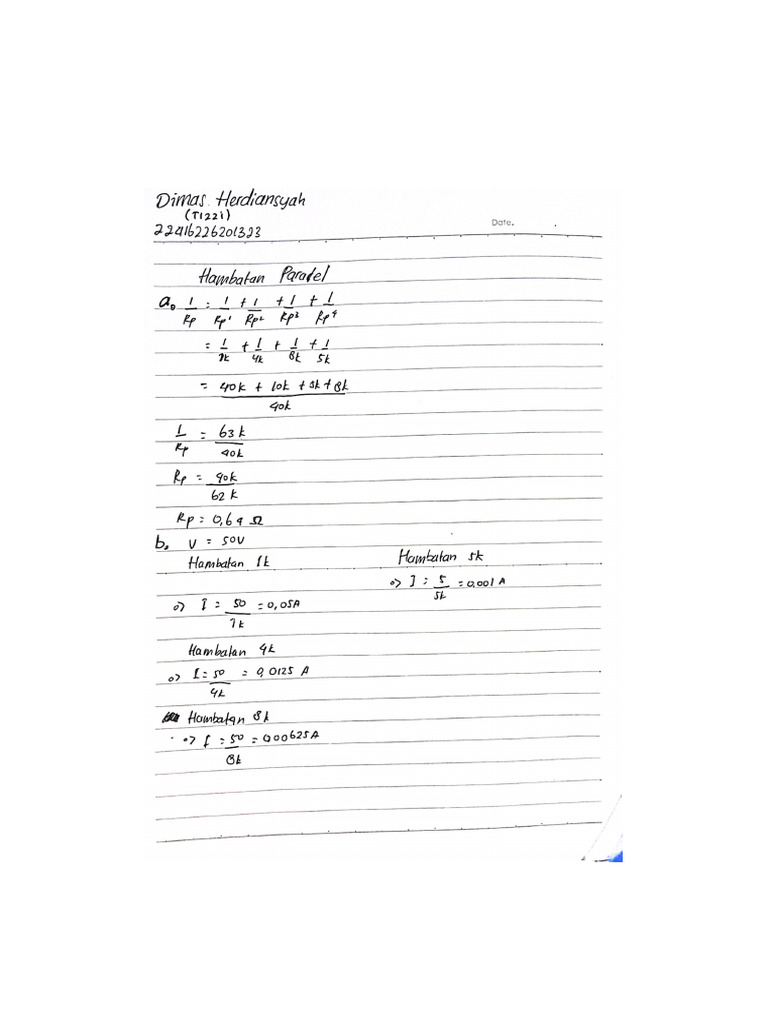 Dimas Herdiansyah
(TI22i)
22416226201323
Date.
Hambatan Pararel
a. 1/Rp = 1/Rp1 + 1/Rp2 + 1/Rp3 + 1/Rp4
= 1/1k + 1/4k + 1/8k + 1/5k
= 40k + 10k + 5k + 8k / 40k
1/Rp = 63k/40k
Rp = 40k/62k
Rp = 0,64 Ω
b. V = 50V
Hambatan 1k
=> I = 50/1k = 0,05A
Hambatan 4k
=> I = 50/4k = 0,0125 A
Hambatan 8k
=> I = 50/8k = 0,00625A
Hambatan 5k
=> I = 5/5k = 0,001 A